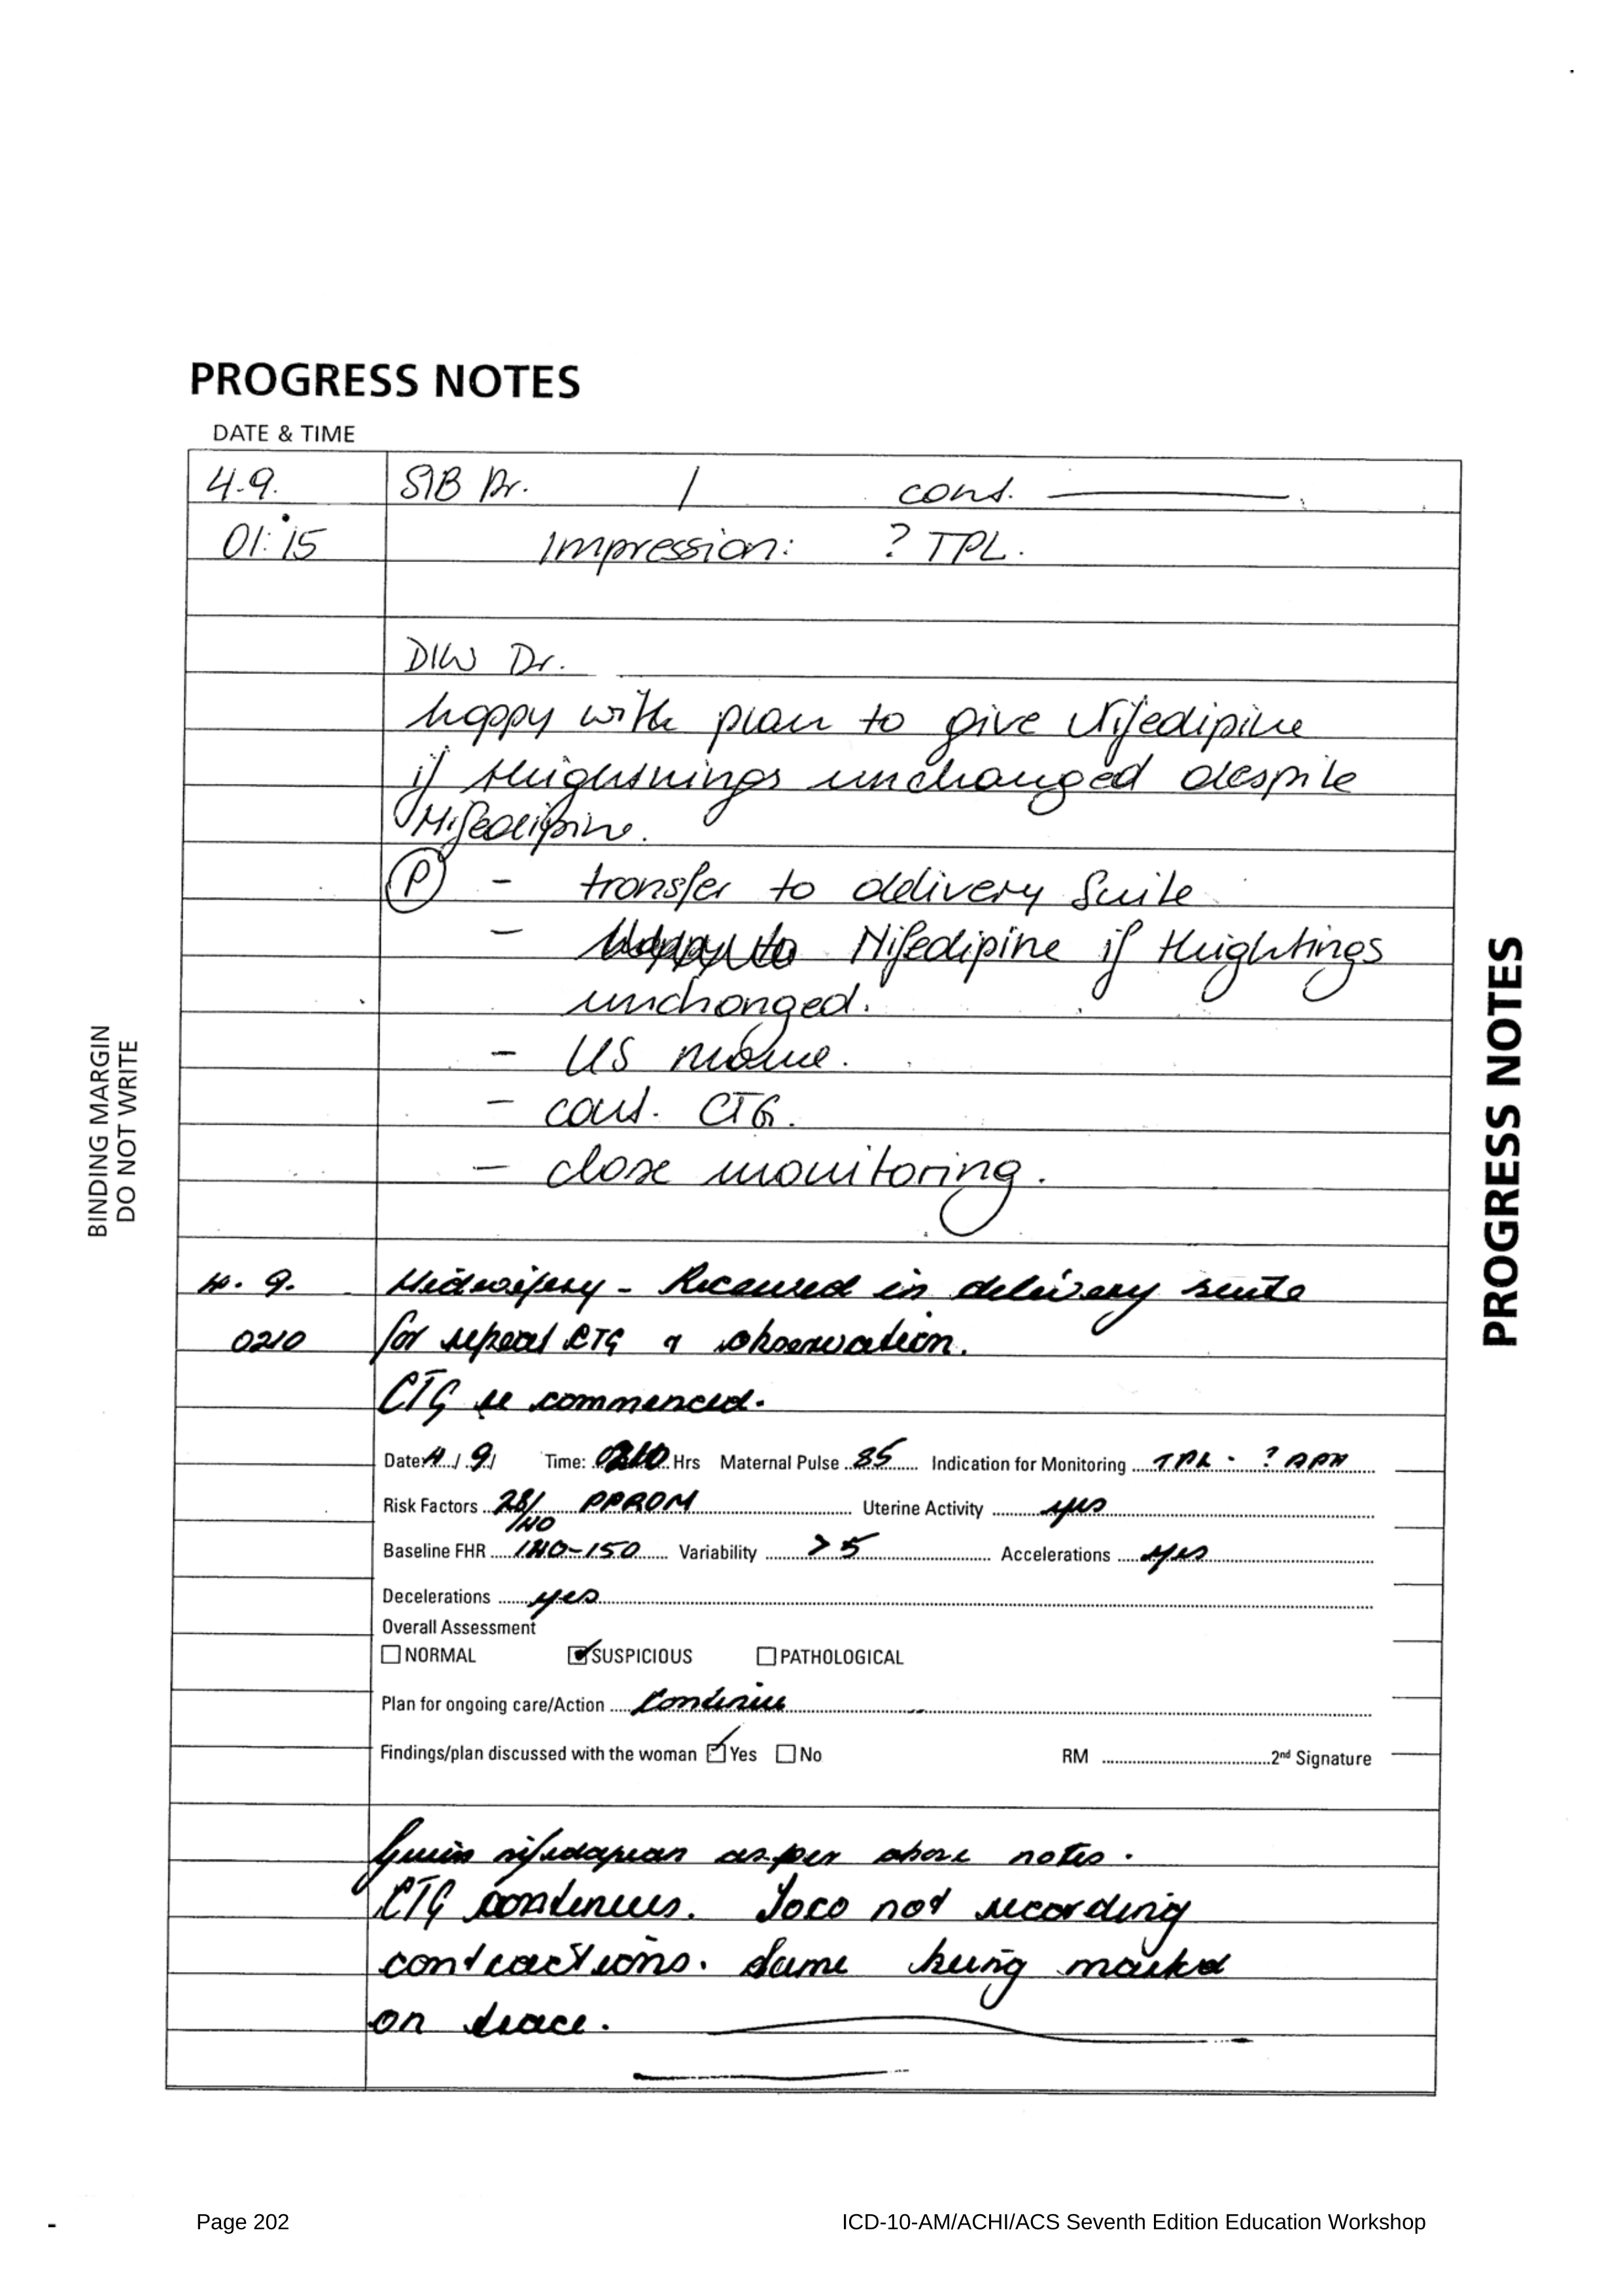 PROGRESS NOTES
DATE & TIME
4.9. S/B Dr. / cont.
01:15 Impression: ? TPL.
D/W Dr.
happy with plan to give Nifedipine
if thightnings unchanged despite
Nifedipine.
(P) - transfer to delivery Suite
- Nifedipine if thightings
unchanged.
- US mane.
- cont. CTG.
- close monitoring.
4.9. Midwifery - Received in delivery suite
0210 for repeat CTG & observation.
CTG re commenced.
Date: 4/9/ Time: 0210 Hrs Maternal Pulse 85 Indication for Monitoring TPL - ? APH
Risk Factors 28/40 PPROM Uterine Activity yes
Baseline FHR 140-150 Variability >5 Accelerations yes
Decelerations yes
Overall Assessment
NORMAL SUSPICIOUS PATHOLOGICAL
Plan for ongoing care/Action Continue
Findings/plan discussed with the woman Yes No RM 2nd Signature
as per above notes.
CTG continues. Toco not recording
contractions. Same being marked
on trace.
BINDING MARGIN
DO NOT WRITE
PROGRESS NOTES
Page 202 ICD-10-AM/ACHI/ACS Seventh Edition Education Workshop